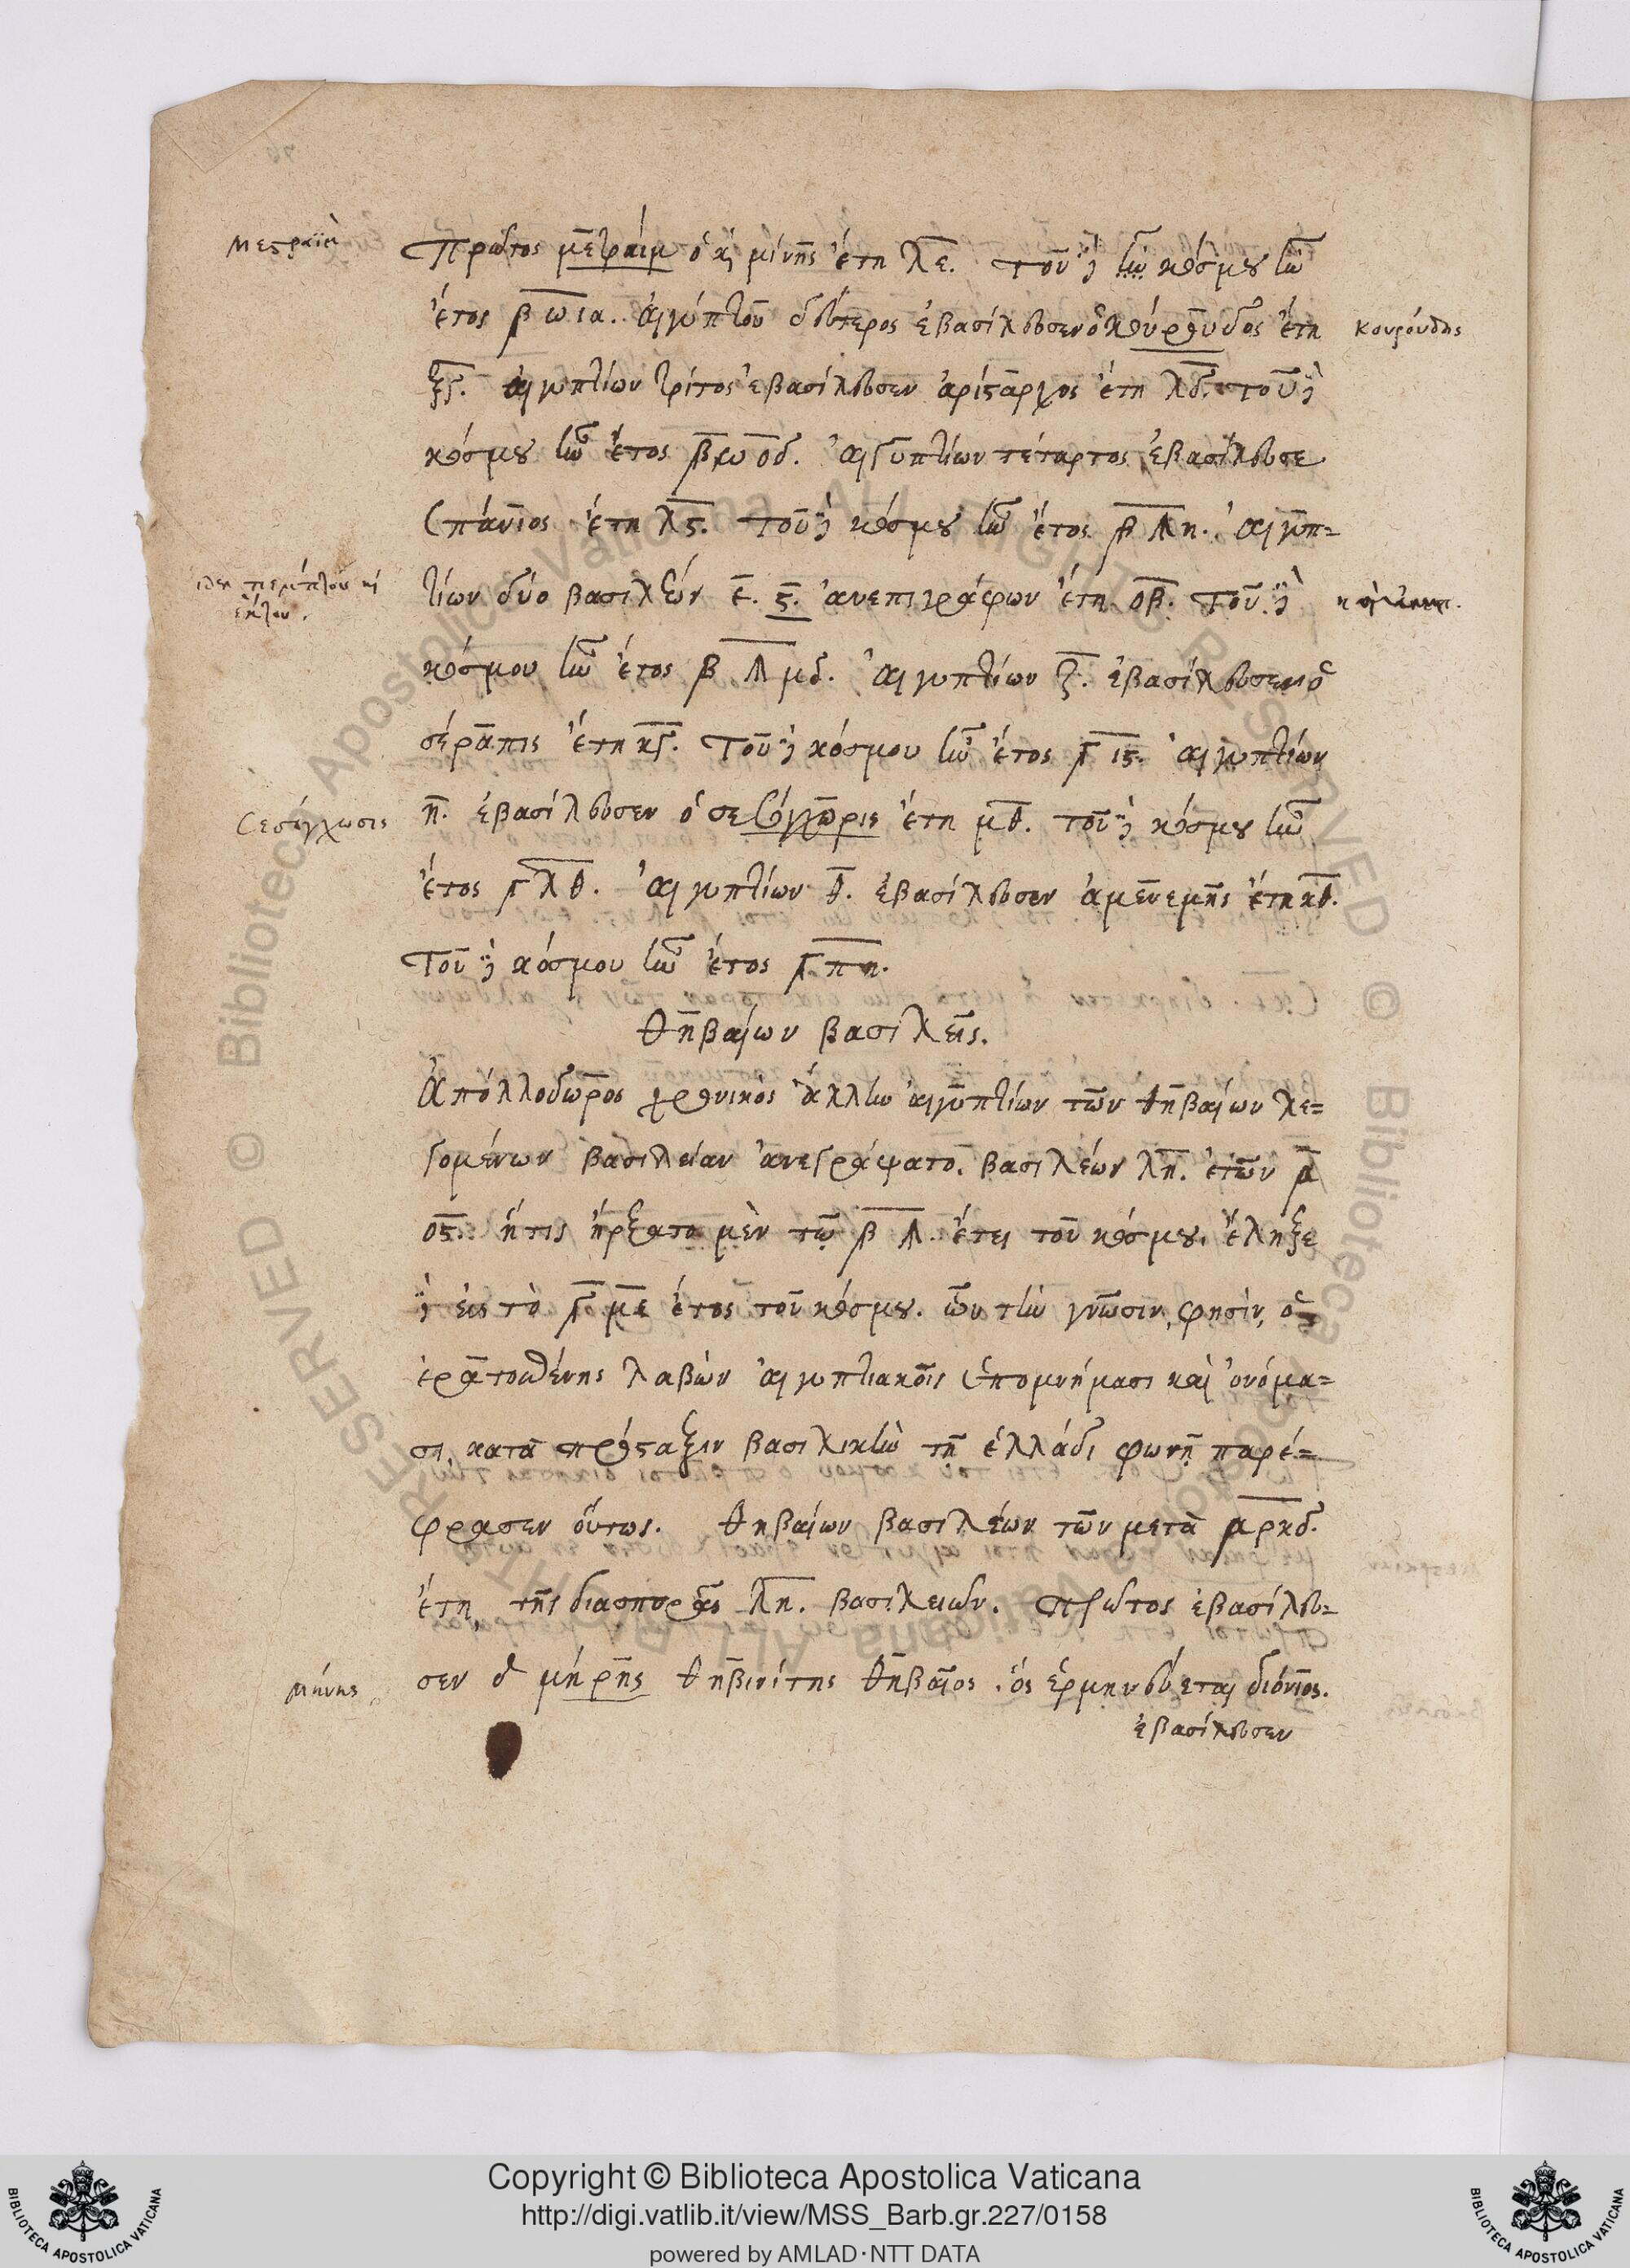 Μεςραϊμ
Πρῶτος μετραὶμ ὁ κ μίνης ἔτη λε. τοῦ δὲ ἦν κόσμου ἦν
ἔτος βωια. αἰγύπτου δεύτερος ἐβασίλευσεν ὁ κούρουδος ἔτη
Κουρούδης
ξγ. αἰγυπτίων τρίτος ἐβασίλευσεν ἀρίσταρχος ἔτη λδ. τοῦ δὲ
κόσμου ἦν ἔτος βωοδ. αἰγυπτίων τέταρτος ἐβασίλευσε
Σπάνιος ἔτη λς. τοῦ δὲ κόσμου ἦν ἔτος βϡη. αἰγυπ=
τίων δύο βασιλέων ε. ς. ἀνεπιγράφων ἔτη οβ. τοῦ δὲ
κόσμου ἦν ἔτος βϡμδ. αἰγυπτίων ζ. ἐβασίλευσεν ὁ
σέραπις ἔτη κγ. τοῦ δὲ κόσμου ἦν ἔτος γις. αἰγυπτίων
Σεσόγχωσις
η. ἐβασίλευσεν ὁ σεσόγχωρις ἔτη μθ. τοῦ δὲ κόσμου ἦν
ἔτος γλθ. αἰγυπτίων θ. ἐβασίλευσεν ἀμενεμῆς ἔτη κθ.
τοῦ δὲ κόσμου ἦν ἔτος γπη.
Θηβαίων βασιλεῖς.
Ἀπόλλοδωρος χρονικὸς ἄλλην αἰγυπτίων τῶν θηβαίων λε=
γομένων βασιλείαν ἀνεγράψατο. βασιλέων λη. ἐτῶν α
ος. ἥτις ἤρξατο μὲν τῷ βϡ. ἔτει τοῦ κόσμου. ἔληξε
δὲ εἰς τὸ γμε ἔτος τοῦ κόσμου. ὧν τὴν γνῶσιν, φησὶν, ὁ
ἐρατοσθένης λαβὼν αἰγυπτιακοῖς ὑπομνήμασι καὶ ὀνόμα=
σι, κατὰ πρόσταξιν βασιλικὴν τῇ ἑλλάδι φωνῇ παρέ=
φρασεν οὕτως. Θηβαίων βασιλέων τῶν μετὰ αρκδ.
ἔτη, τῆς διασπορᾶς λη. βασιλειῶν. πρῶτος ἐβασίλευ=
Μήνης
σεν ὁ μήρης θηβινίτης θηβαῖος. ὃς ἑρμηνεύεται διόνιος.
ἐβασίλευσεν
Copyright © Biblioteca Apostolica Vaticana
http://digi.vatlib.it/view/MSS_Barb.gr.227/0158
powered by AMLAD·NTT DATA
BIBLIOTECA APOSTOLICA VATICANA
BIBLIOTECA APOSTOLICA VATICANA